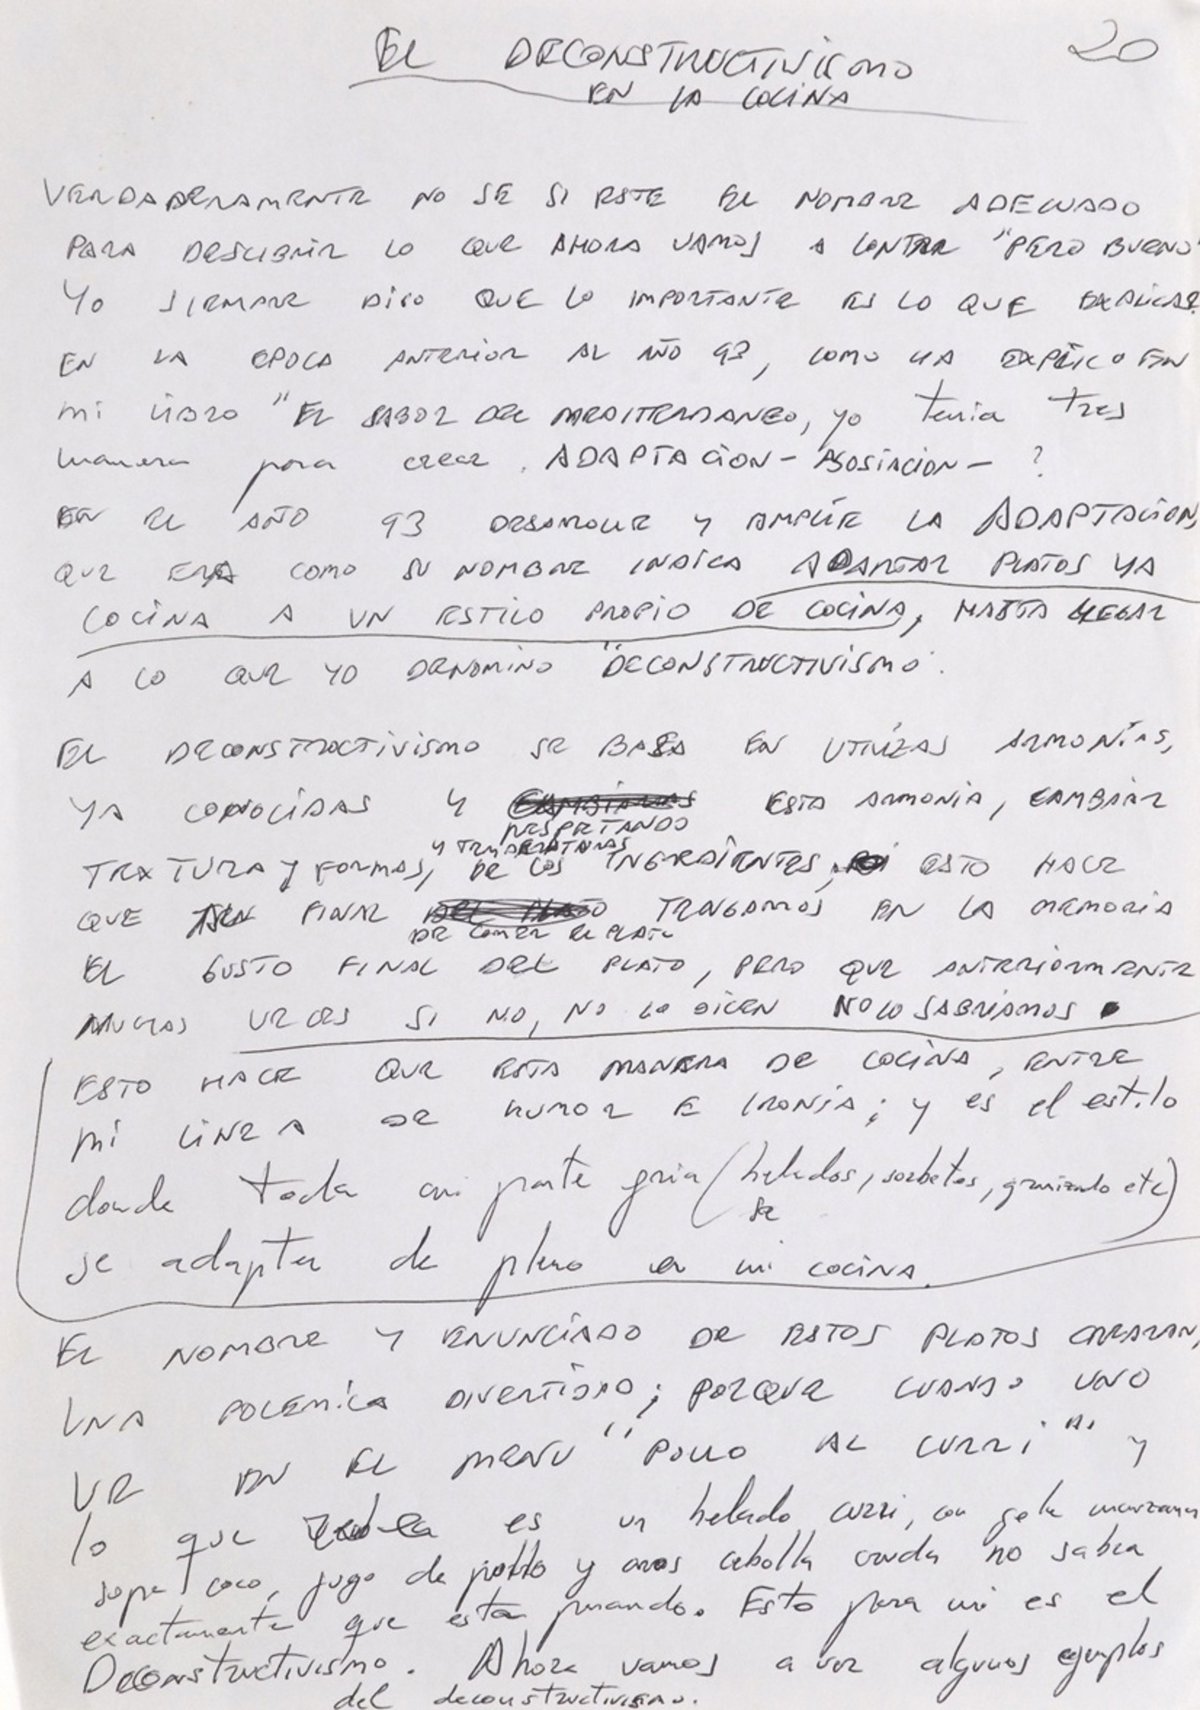 EL DECONSTRUCTIVISMO
20
EN LA COCINA
VERDADERAMENTE NO SE SI ESTE EL NOMBRE ADECUADO
PARA DESCIBRIR LO QUE AHORA VAMOS A CONTAR "PERO BUENO"
YO SIEMPRE DIGO QUE LO IMPORTANTE ES LO QUE EXPLICAS.
EN LA EPOCA ANTERIOR AL AÑO 93, COMO YA EXPLICO EN
mi LIBRO "EL SABOR DEL MEDITERRANEO, yo tenia tres
manera para crear. ADAPTACION - ASOSIACION - ?
EN EL AÑO 93 DESARROLLE Y AMPLIE LA ADAPTACION,
QUE ERA COMO SU NOMBRE INDICA ADAPTAR PLATOS YA
COCINA A UN ESTILO PROPIO DE COCINA, HASTA LLEGAR
A LO QUE YO DENOMINO "DECONSTRUCTIVISMO.
EL DECONSTRUCTIVISMO SE BASA EN UTILIZAS ARMONIAS,
YA CONOCIDAS Y ESTA ARMONIA, CAMBIAR
RESPETANDO
Y TEMPERATURAS
TEXTURA y FORMAS, DE LOS INGREDIENTES, ESTO HACE
QUE FINAL TENGAMOS EN LA MEMORIA
DE COMER EL PLATO
EL GUSTO FINAL DEL PLATO, PERO QUE ANTERIORMENTE
MUCHAS VECES SI NO, NO LO DICEN NO LO SABRIAMOS.
ESTO HACE QUE ESTA MANERA DE COCINA, ENTRE
MI LINEA DE HUMOR E IRONIA; y es el estilo
donde toda mi parte fria (helados, sorbetes, granizado etc)
se
se adapta de pleno en mi cocina.
EL NOMBRE Y ENUNCIADO DE ESTOS PLATOS CREARAN,
UNA POLEMICA DIVERTIDAD; PORQUE CUANDO UNO
VE EN EL MENU "POLLO AL CURRI" Y
lo que es un helado curri, con gele manzana
sopa coco, jugo de pollo y aros cebolla cruda no sabra
exactamente que esta pasando. Esto para mi es el
Deconstructivismo. Ahora vamos a ver algunos ejemplos
del deconstructivismo.